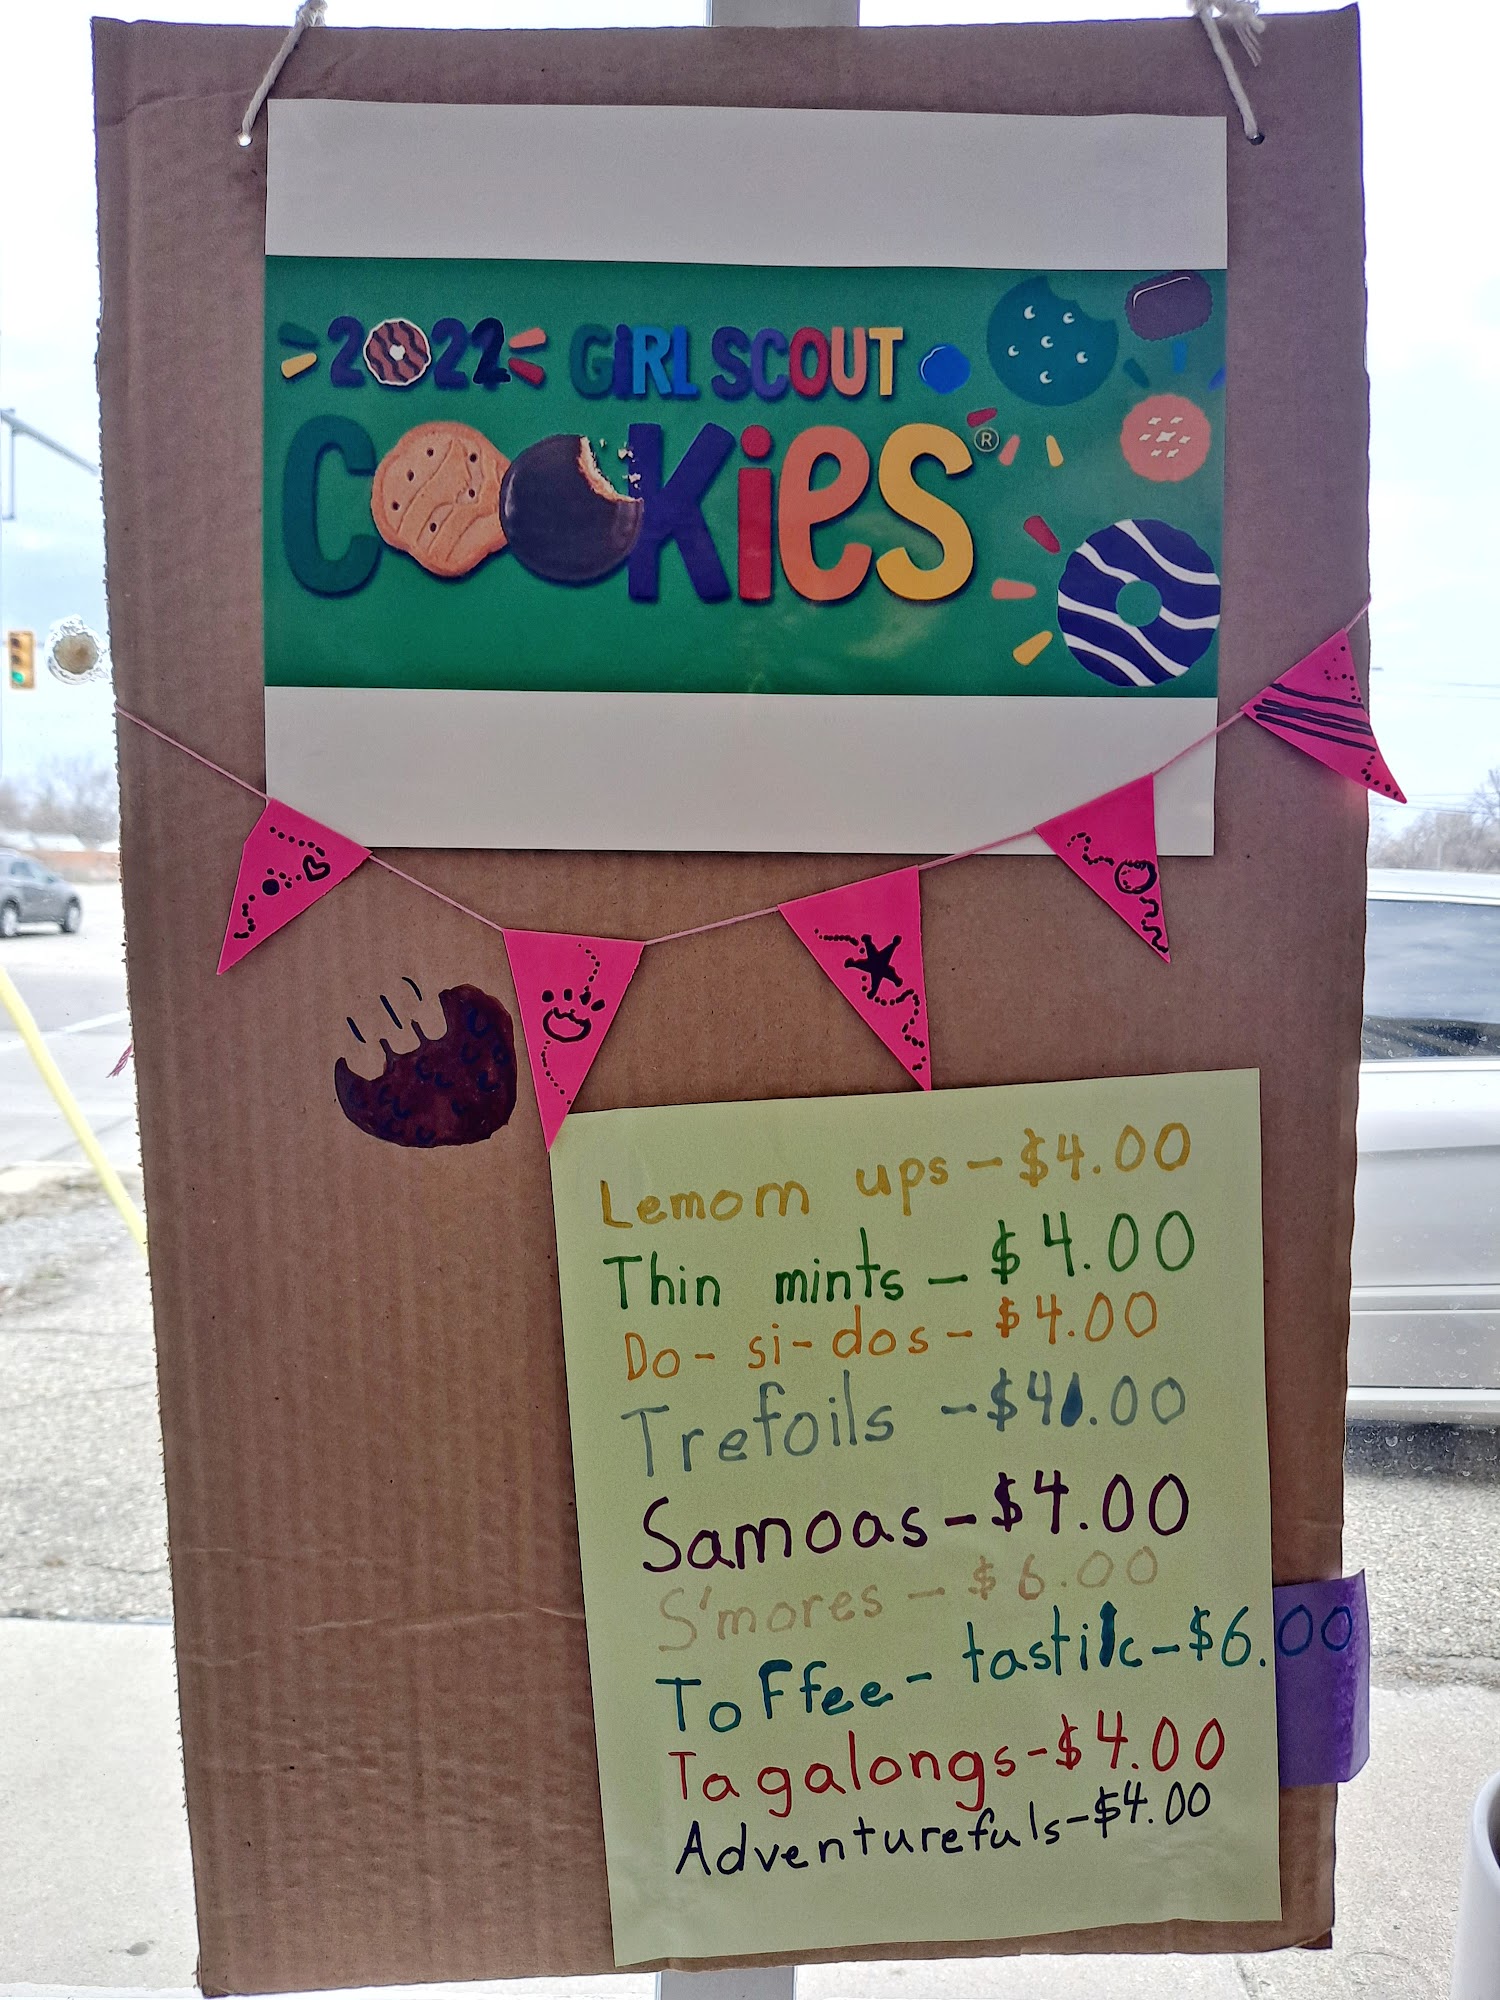 2022 GIRL SCOUT
COOKIES®
Lemom ups - $4.00
Thin mints - $4.00
Do-si-dos - $4.00
Trefoils - $4.00
Samoas - $4.00
S'mores - $6.00
Toffee-tastic - $6.00
Tagalongs - $4.00
Adventurefuls - $4.00